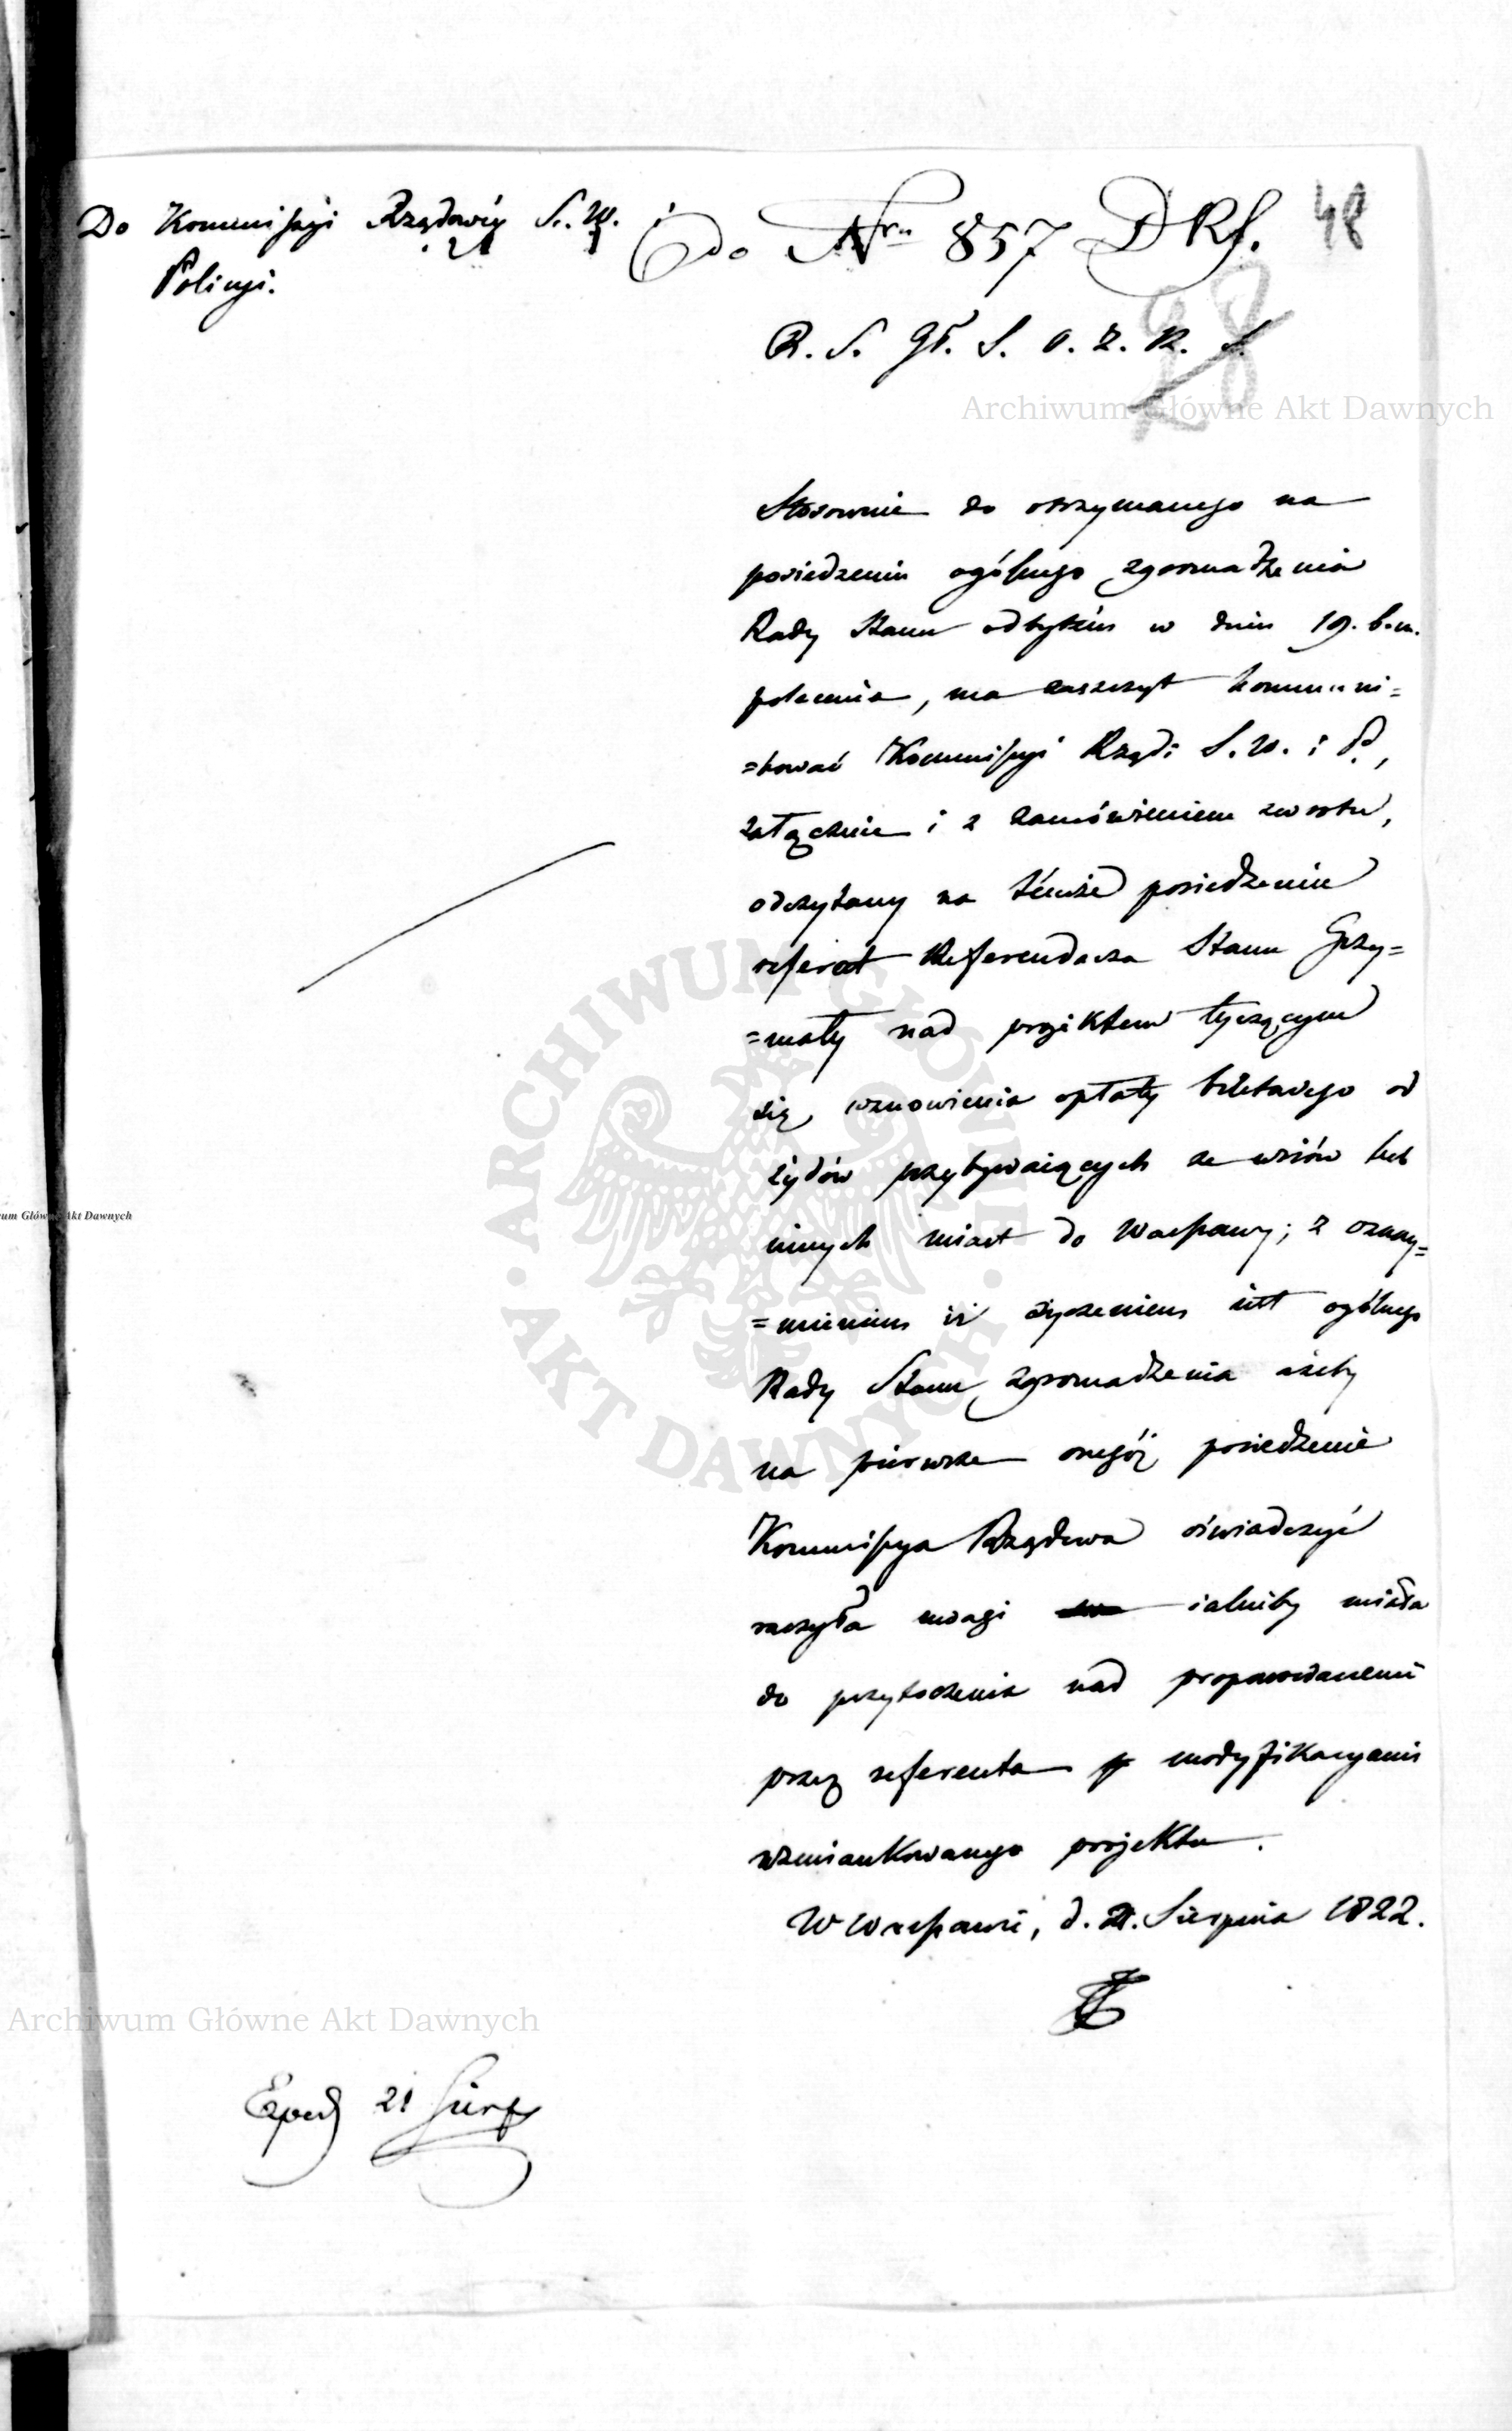 Do Kommissyi Rządowéy S. W. i
Policyi.
do Nru 857 DRS.
48
28
R. S. Gł. S. O. Z. R. S.
Archiwum Główne Akt Dawnych
Stosownie do otrzymanego na
posiedzeniu ogólnego zgromadzenia
Rady Stanu odbytém w dniu 19. b. m.
polecenia, ma zaszczyt kommuni=
=kować Kommissyi Rząd: S. W. i P.,
załącznie i z zamówieniem zwrotu,
odczytany na témże posiedzeniu
referat Referendarza Stanu Grzy=
=mały nad projektem tyczącym
się wznowienia opłaty biletowego od
żydów przybywaiących ze wsiów lub
innych miast do Warszawy; z oznay=
=mieniem iż życzeniem iest ogólnego
Rady Stanu zgromadzenia ażeby
na pierwsze onegóż posiedzenie
Kommissya Rządowa oświadczyć
raczyła uwagi iakieby miała
do przytoczenia nad proponowanemi
przez referenta modyfikacyami
wzmiankowanego projektu.
W Warszawie, d. 21. Sierpnia 1822.
Archiwum Główne Akt Dawnych
Exped 21 Sierp
ARCHIWUM GŁÓWNE
· AKT DAWNYCH ·
um Główne Akt Dawnych